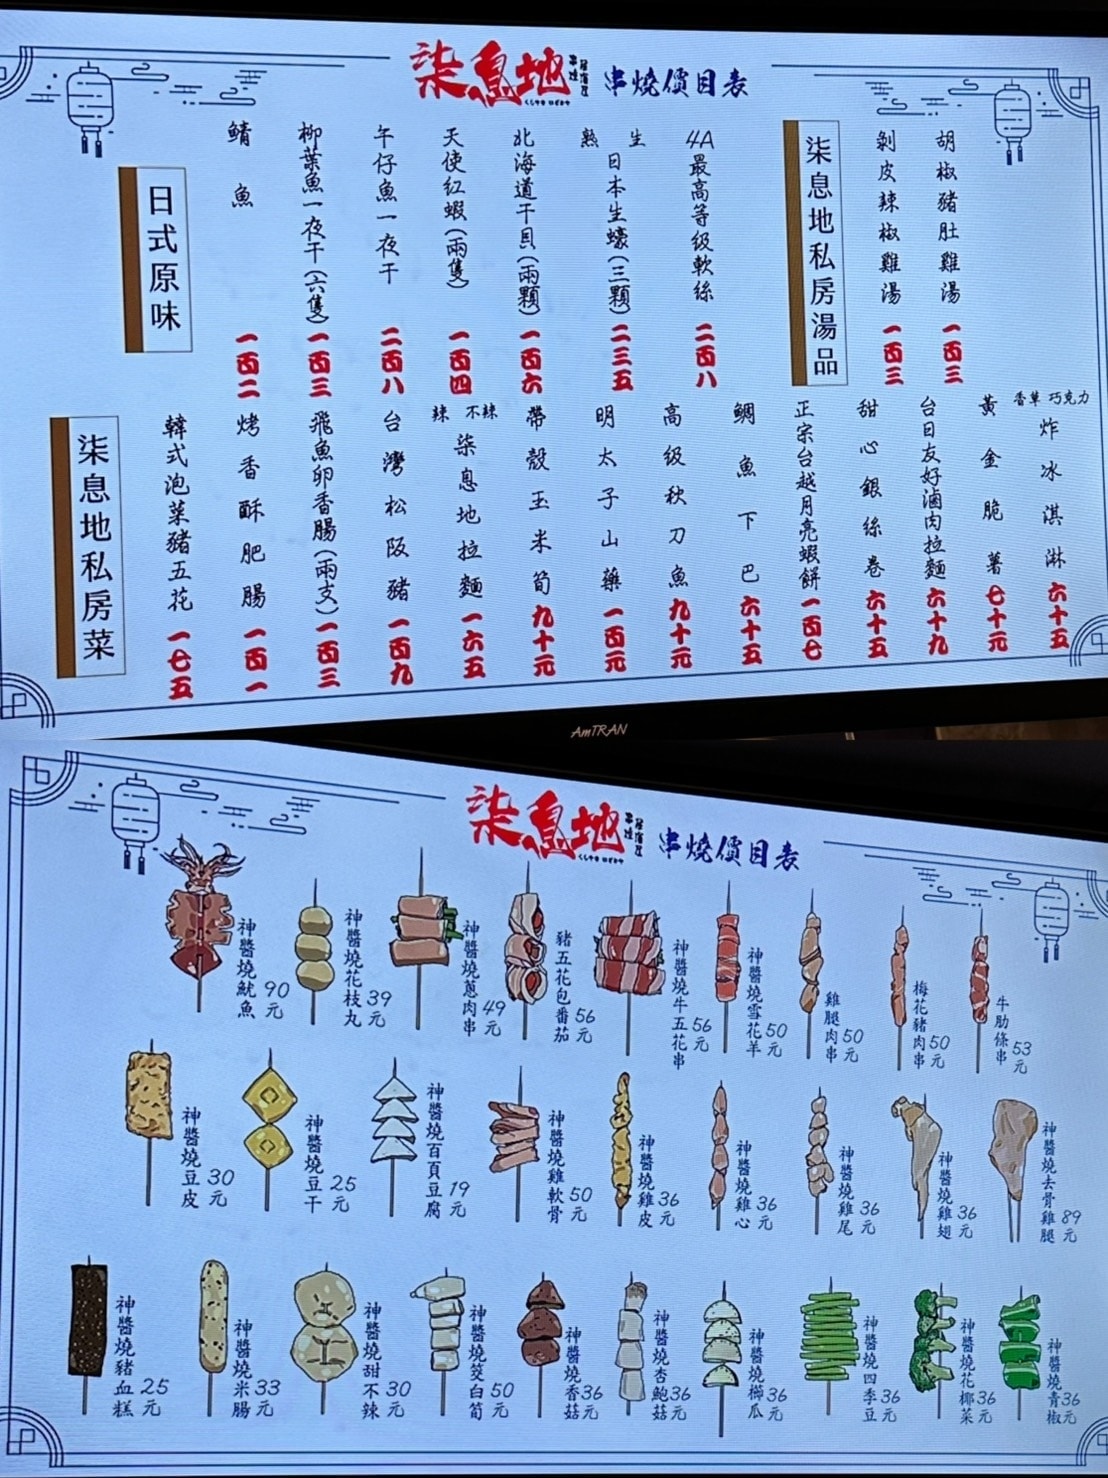 柒息地
串燒
居酒屋
串燒價目表
柒息地私房湯品
胡椒豬肚雞湯 一百三
剝皮辣椒雞湯 一百三
日式原味
4A最高等級軟絲 二百八
生 熟
日本生蠔(三顆) 二三五
北海道干貝(兩顆) 一百六
天使紅蝦(兩隻) 一百四
午仔魚一夜干 二百八
柳葉魚一夜干(六隻) 一百三
鯖魚 一百二
柒息地私房菜
香草 巧克力
炸冰淇淋 六十五
黃金脆薯 七十元
台日友好滷肉拉麵 六十九
甜心銀絲卷 六十五
正宗台越月亮蝦餅 一百七
鯛魚下巴 六十五
高級秋刀魚 九十元
明太子山藥 一百元
帶殼玉米筍 九十元
辣 不辣
柒息地拉麵 一六五
台灣松阪豬 一百九
飛魚卵香腸(兩支) 一百三
烤香酥肥腸 一百一
韓式泡菜豬五花 一七五
AmTRAN
柒息地
串燒
居酒屋
串燒價目表
神醬燒魷魚 90元
神醬燒花枝丸 39元
神醬燒蔥肉串 49元
豬五花包番茄 56元
神醬燒牛五花串 56元
神醬燒雪花羊 50元
雞腿肉串 50元
梅花豬肉串 50元
牛肋條串 53元
神醬燒豆皮 30元
神醬燒豆干 25元
神醬燒百頁豆腐 19元
神醬燒雞軟骨 50元
神醬燒雞皮 36元
神醬燒雞心 36元
神醬燒雞尾 36元
神醬燒雞翅 36元
神醬燒去骨雞腿 89元
神醬燒豬血糕 25元
神醬燒米腸 33元
神醬燒甜不辣 30元
神醬燒筊白筍 50元
神醬燒香菇 36元
神醬燒杏鮑菇 36元
神醬燒櫛瓜 36元
神醬燒四季豆 36元
神醬燒花椰菜 36元
神醬燒青椒 36元